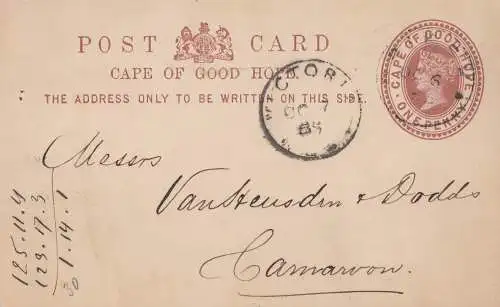 POST CARD
CAPE OF GOOD HOPE.
THE ADDRESS ONLY TO BE WRITTEN ON THIS SIDE.
CAPE OF GOOD HOPE
ONE PENNY
VICTORI
OC 7
Messrs
Van Heusden & Dodds
Carnarvon.
125.11.4
123.17.3
1.14.1
30